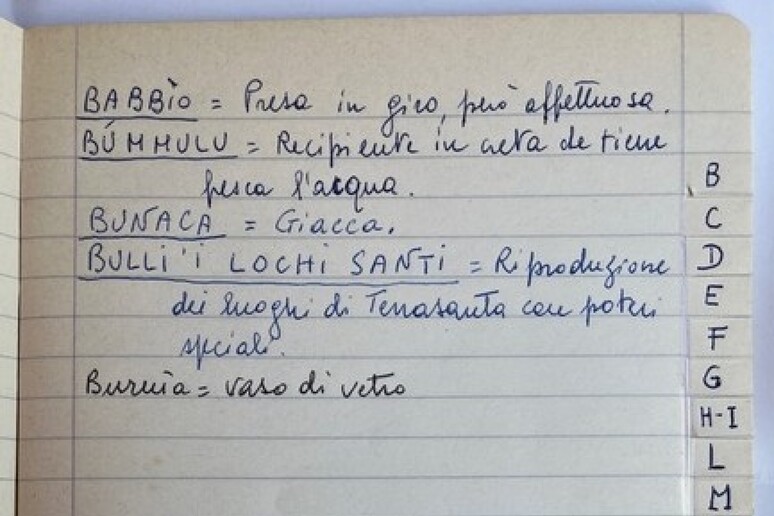 BABBÌO = Presa in giro, però affettuosa.
BÚMMULU = Recipiente in creta che tiene
fresca l'acqua.
BUNACA = Giacca.
BULLI 'I LOCHI SANTI = Riproduzione
dei luoghi di Terrasanta con poteri
speciali.
Burnìa = vaso di vetro
B
C
D
E
F
G
H-I
L
M